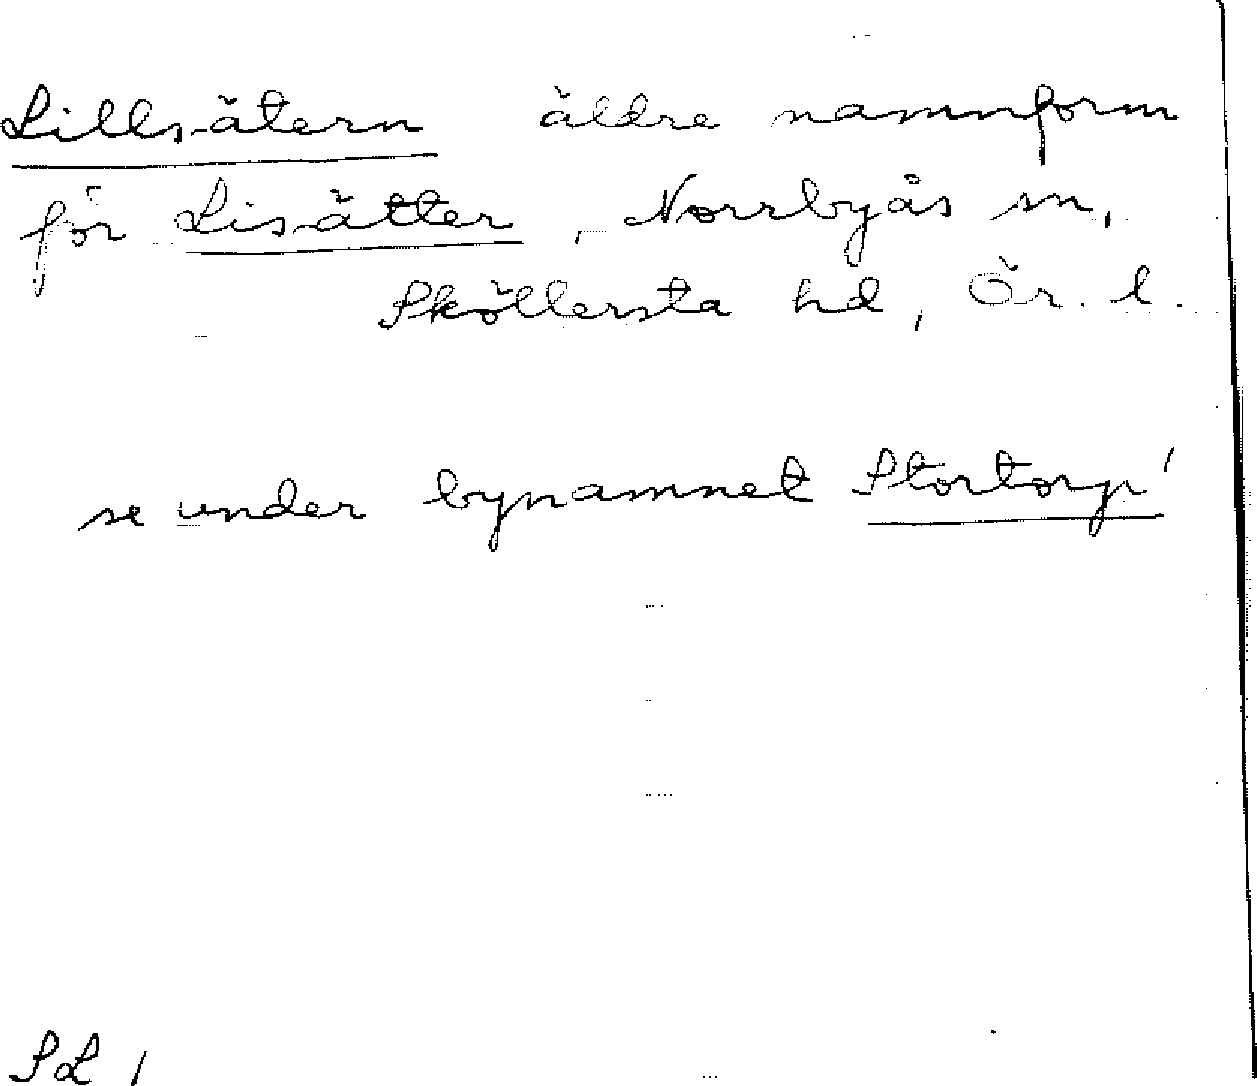 Lillsätern äldre namnform
för Lisätter, Norrbyås sn,
Sköllersta hd, Ör. l.
se under bynamnet Stortorp!
SL 1